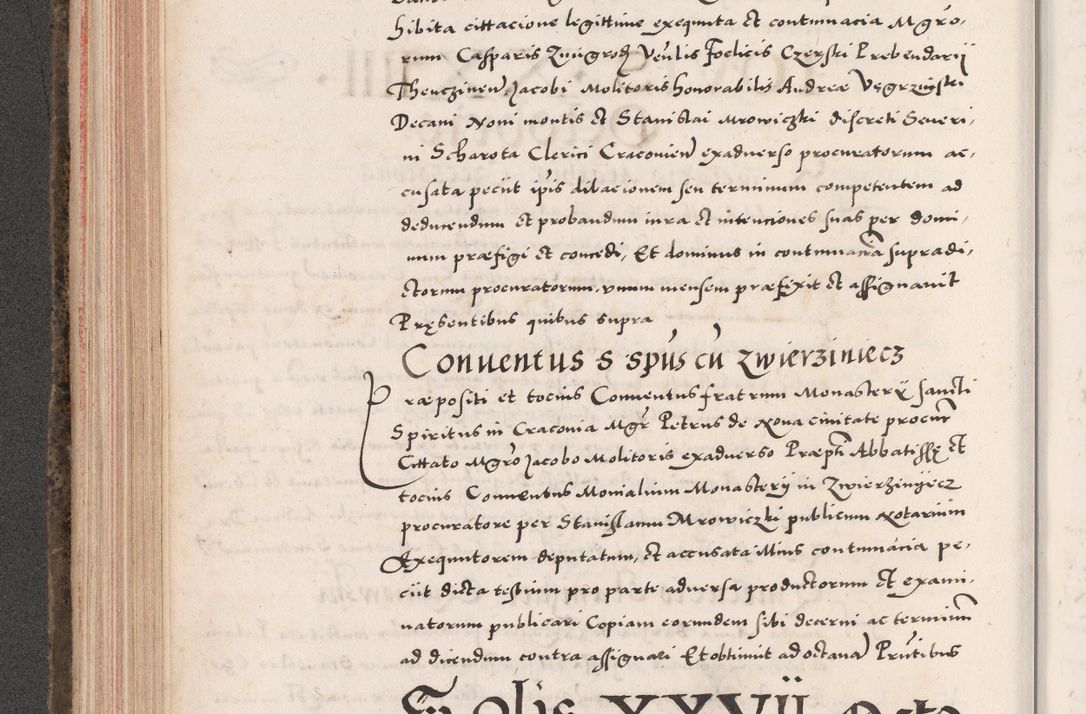 hibita cittacione legittime exequuta et contumacia Mgro-
rum Casparis Zmigrod Venlis Foelicis Czerski Prebendarii
Thenczinen Jacobi Molitoris honorabilis Andreæ Vęgrzinski
Decani Noni montis et Stanislai Mrowiczki discreti Seueri-
ni Scharota Clerici Cracouien exaduerso procuratorum ac-
cusata peciit ipsis dilacionem seu terminum competentem ad
deducendum et probandum iura et intenciones suas per domi-
num præfigi et concedi, Et dominus in contumacia supradi-
ctorum procuratorum, vnum mensem præfixit et assignauit
Pręsentibus quibus supra
Conuentus S spus cu Zwierziniecz
Præpositi et tocius Conuentus fratrum Monastery sancti
Spiritus in Cracouia Mgr Petrus de Noua ciuitate procur
Cittato Mgro Jacobo Molitoris exaduerso Præpti Abbatissę et
tocius Conuentus Monialium Monastery in Zwierzinyecz
procuratore per Stanislaum Mrowiczki publicum Notarium
Exequutorem deputatum, et accusata illius contumacia pe-
ciit dicta testium pro parte aduersa productorum et exami-
natorum publicari Copiam eorundem sibi decerni ac terminum
ad dicendum contra assignari Et obtinuit ad octaua Prntibus
XXVII Octo